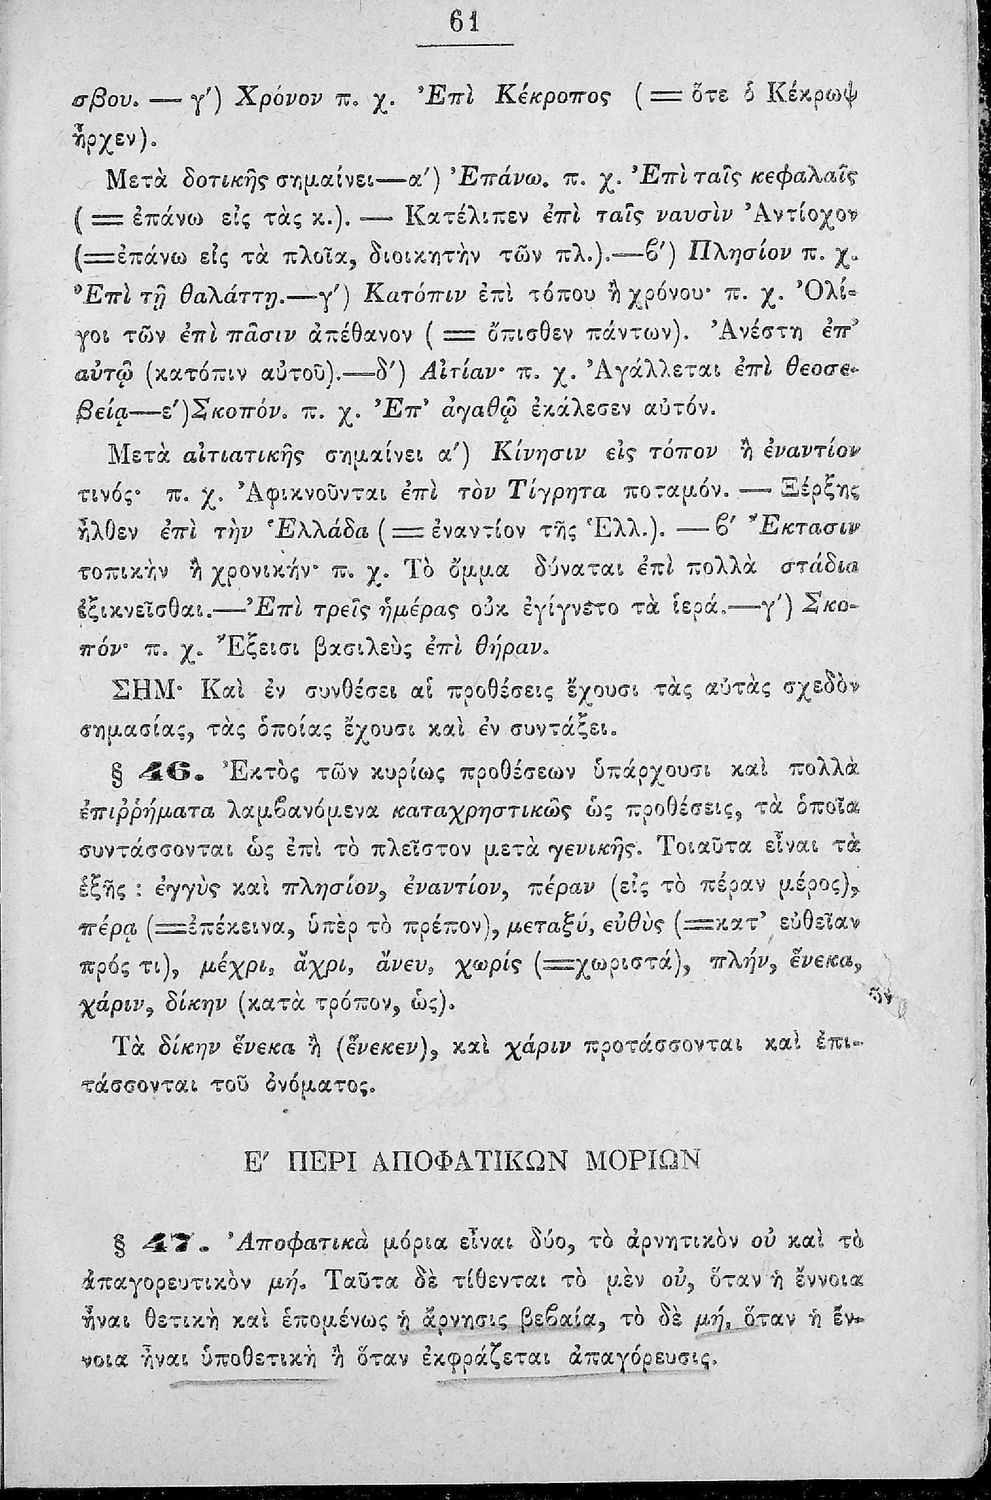 61
σβου. — γ') Χρόνον π. χ. Ἐπὶ Κέκροπος (= ὅτε ὁ Κέκρωψ
ἦρχεν).
Μετὰ δοτικῆς σημαίνει—α') Ἐπάνω. π. χ. Ἐπὶ ταῖς κεφαλαῖς
(= ἐπάνω εἰς τὰς κ.). — Κατέλιπεν ἐπὶ ταῖς ναυσὶν Ἀντίοχον
(=ἐπάνω εἰς τὰ πλοῖα, διοικητὴν τῶν πλ.).—ϐ') Πλησίον π. χ.
Ἐπὶ τῇ θαλάττῃ.—γ') Κατόπιν ἐπὶ τόπου ἢ χρόνου· π. χ. Ὀλί-
γοι τῶν ἐπὶ πᾶσιν ἀπέθανον (= ὄπισθεν πάντων). Ἀνέστη ἐπ'
αὐτῷ (κατόπιν αὐτοῦ).—δ') Αἰτίαν· π. χ. Ἀγάλλεται ἐπὶ θεοσε-
βείᾳ—ε')Σκοπόν. π. χ. Ἐπ' ἀγαθῷ ἐκάλεσεν αὐτόν.
Μετὰ αἰτιατικῆς σημαίνει α') Κίνησιν εἰς τόπον ἢ ἐναντίον
τινός· π. χ. Ἀφικνοῦνται ἐπὶ τὸν Τίγρητα ποταμόν. — Ξέρξης
ἦλθεν ἐπὶ τὴν Ἑλλάδα (= ἐναντίον τῆς Ἑλλ.). — ϐ' Ἔκτασιν
τοπικὴν ἢ χρονικήν· π. χ. Τὸ ὄμμα δύναται ἐπὶ πολλὰ στάδια
ἐξικνεῖσθαι.—Ἐπὶ τρεῖς ἡμέρας οὐκ ἐγίγνετο τὰ ἱερά.—γ') Σκο-
πόν· π. χ. Ἔξεισι βασιλεὺς ἐπὶ θήραν.
ΣΗΜ· Καὶ ἐν συνθέσει αἱ προθέσεις ἔχουσι τὰς αὐτὰς σχεδὸν
σημασίας, τὰς ὁποίας ἔχουσι καὶ ἐν συντάξει.
§ 46. Ἐκτὸς τῶν κυρίως προθέσεων ὑπάρχουσι καὶ πολλὰ
ἐπιῤῥήματα λαμϐανόμενα καταχρηστικῶς ὡς προθέσεις, τὰ ὁποῖα
συντάσσονται ὡς ἐπὶ τὸ πλεῖστον μετὰ γενικῆς. Τοιαῦτα εἶναι τὰ
ἑξῆς : ἐγγὺς καὶ πλησίον, ἐναντίον, πέραν (εἰς τὸ πέραν μέρος),
πέρᾳ (=ἐπέκεινα, ὑπὲρ τὸ πρέπον), μεταξύ, εὐθὺς (=κατ' εὐθεῖαν
πρός τι), μέχρι, ἄχρι, ἄνευ, χωρίς (=χωριστά), πλήν, ἕνεκα,
χάριν, δίκην (κατὰ τρόπον, ὡς).
Τὰ δίκην ἕνεκα ἢ (ἕνεκεν), καὶ χάριν προτάσσονται καὶ ἐπι-
τάσσονται τοῦ ὀνόματος.
Ε' ΠΕΡΙ ΑΠΟΦΑΤΙΚΩΝ ΜΟΡΙΩΝ
§ 47. Ἀποφατικὰ μόρια εἶναι δύο, τὸ ἀρνητικὸν οὐ καὶ τὸ
ἀπαγορευτικὸν μή. Ταῦτα δὲ τίθενται τὸ μὲν οὐ, ὅταν ἡ ἔννοια
ἦναι θετικὴ καὶ ἑπομένως ἡ ἄρνησις βεϐαία, τὸ δὲ μή, ὅταν ἡ ἔν-
νοια ἦναι ὑποθετικὴ ἢ ὅταν ἐκφράζεται ἀπαγόρευσις.